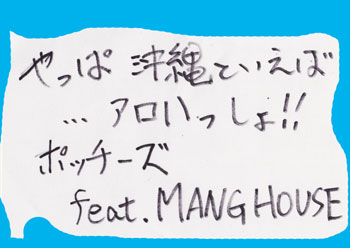 やっぱ 沖縄といえば
… アロハっしょ!!
ポッチーズ
feat. MANGHOUSE